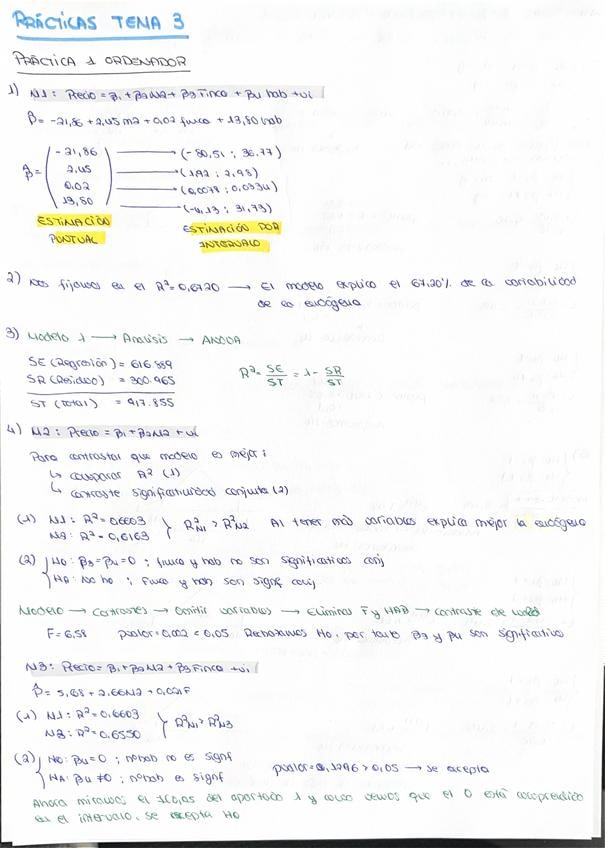 PRÁCTICAS TEMA 3
PRÁCTICA 1 ORDENADOR
1) M1: Precio = β1 + β2M2 + β3 Finca + β4 hab + ui
β̂ = -21,86 + 2,45 m2 + 0,02 finca + 13,80 hab
β̂ = ( -21,86 → (-80,51 ; 36.77)
2,45 → (1,92 ; 2,98)
0,02 → (0,0079 ; 0,0334)
13,80 ) → (-4,13 ; 31,73)
ESTIMACIÓN PUNTUAL
ESTIMACIÓN POR INTERVALO
2) Nos fijamos en el R² = 0,6720 → El modelo explica el 67,20% de la variabilidad
de la endógena
3) Modelo 1 → Análisis → ANOVA
SE (Regresión) = 616.889
SR (Residuo) = 300.965
R² = SE/ST = 1 - SR/ST
ST (Total) = 917.855
4) M2: Precio = β1 + β2M2 + ui
Para contrastar que modelo es mejor:
↳ comparar R² (1)
↳ contraste significatividad conjunta (2)
(1) M1: R² = 0,6603
M2: R² = 0,6163 } R²M1 > R²M2 Al tener más variables explica mejor la endógena
(2) { H0: β3 = β4 = 0 ; finca y hab no son significativas conj
HA: No H0 ; finca y hab son signf conj
Modelo → Contrastes → Omitir variables → Eliminas F y HAB → contraste de Wald
F = 6,58 pvalor = 0,002 < 0,05 Rechazamos H0, por tanto β3 y β4 son significativas
M3: Precio = β1 + β2M2 + β3 Finca + ui
β̂ = 5,68 + 2,66M2 + 0,021F
(1) M1: R² = 0,6603
M3: R² = 0,6550 } R²M1 > R²M3
(2) { H0: β4 = 0 ; nºhab no es signf
HA: β4 ≠ 0 ; nºhab es signf
pvalor = 0,1296 > 0,05 → se acepta
Ahora miramos el del apartado 1 y como vemos que el 0 está comprendido
en el intervalo, se acepta H0